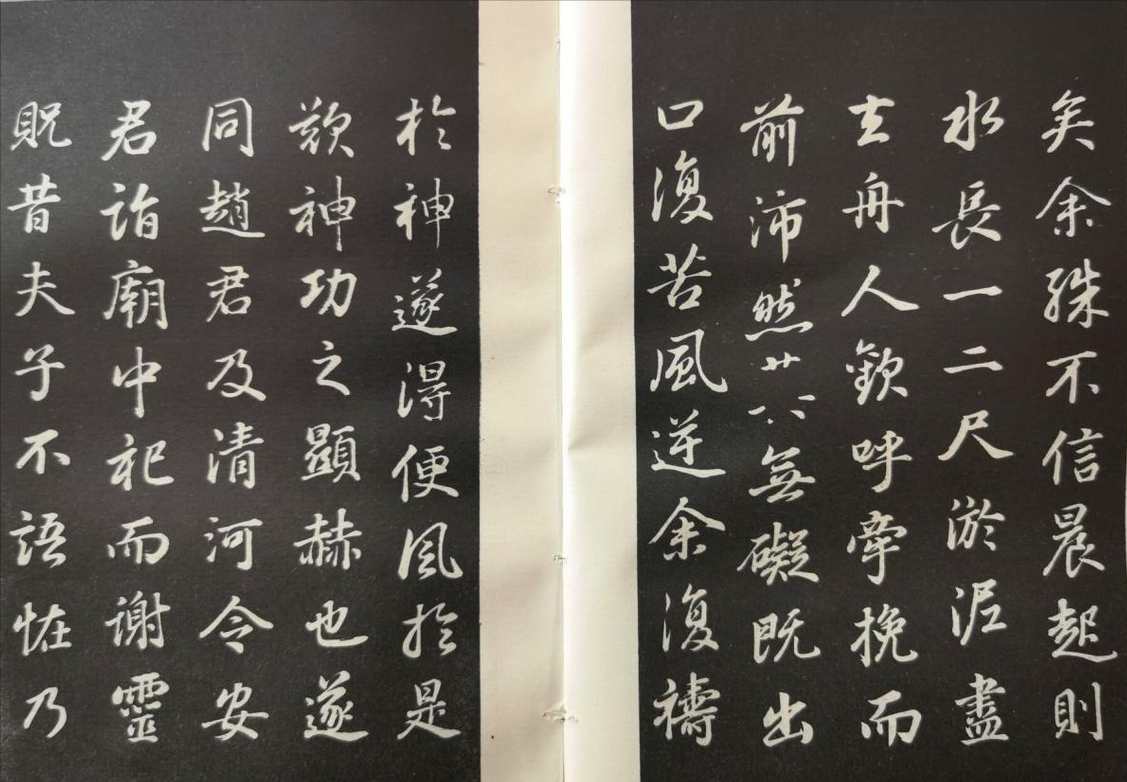 矣余殊不信晨起則
水長一二尺淤泥盡
去舟人歡呼牽挽而
前沛然無礙既出
口復苦風逆余復禱
於神遂得便風於是
歎神功之顯赫也遂
同趙君及清河令安
君詣廟中祀而謝靈
貺昔夫子不語怪乃